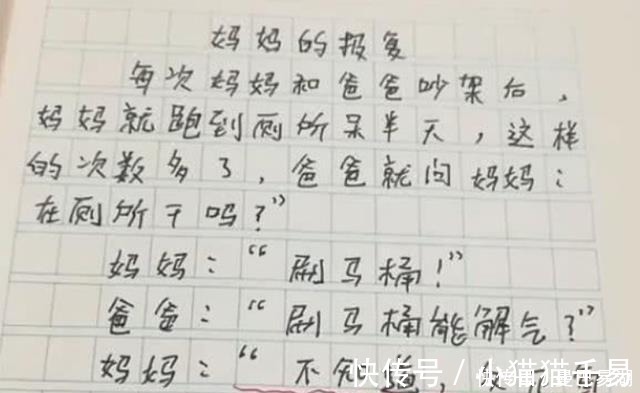 妈妈的报复
每次妈妈和爸爸吵架后，
妈妈就跑到厕所呆半天，这样
的次数多了，爸爸就问妈妈：
在厕所干吗？”
妈妈：“刷马桶！”
爸爸：“刷马桶能解气？”
妈妈：“不知道，
快传号／小猫猫毛易